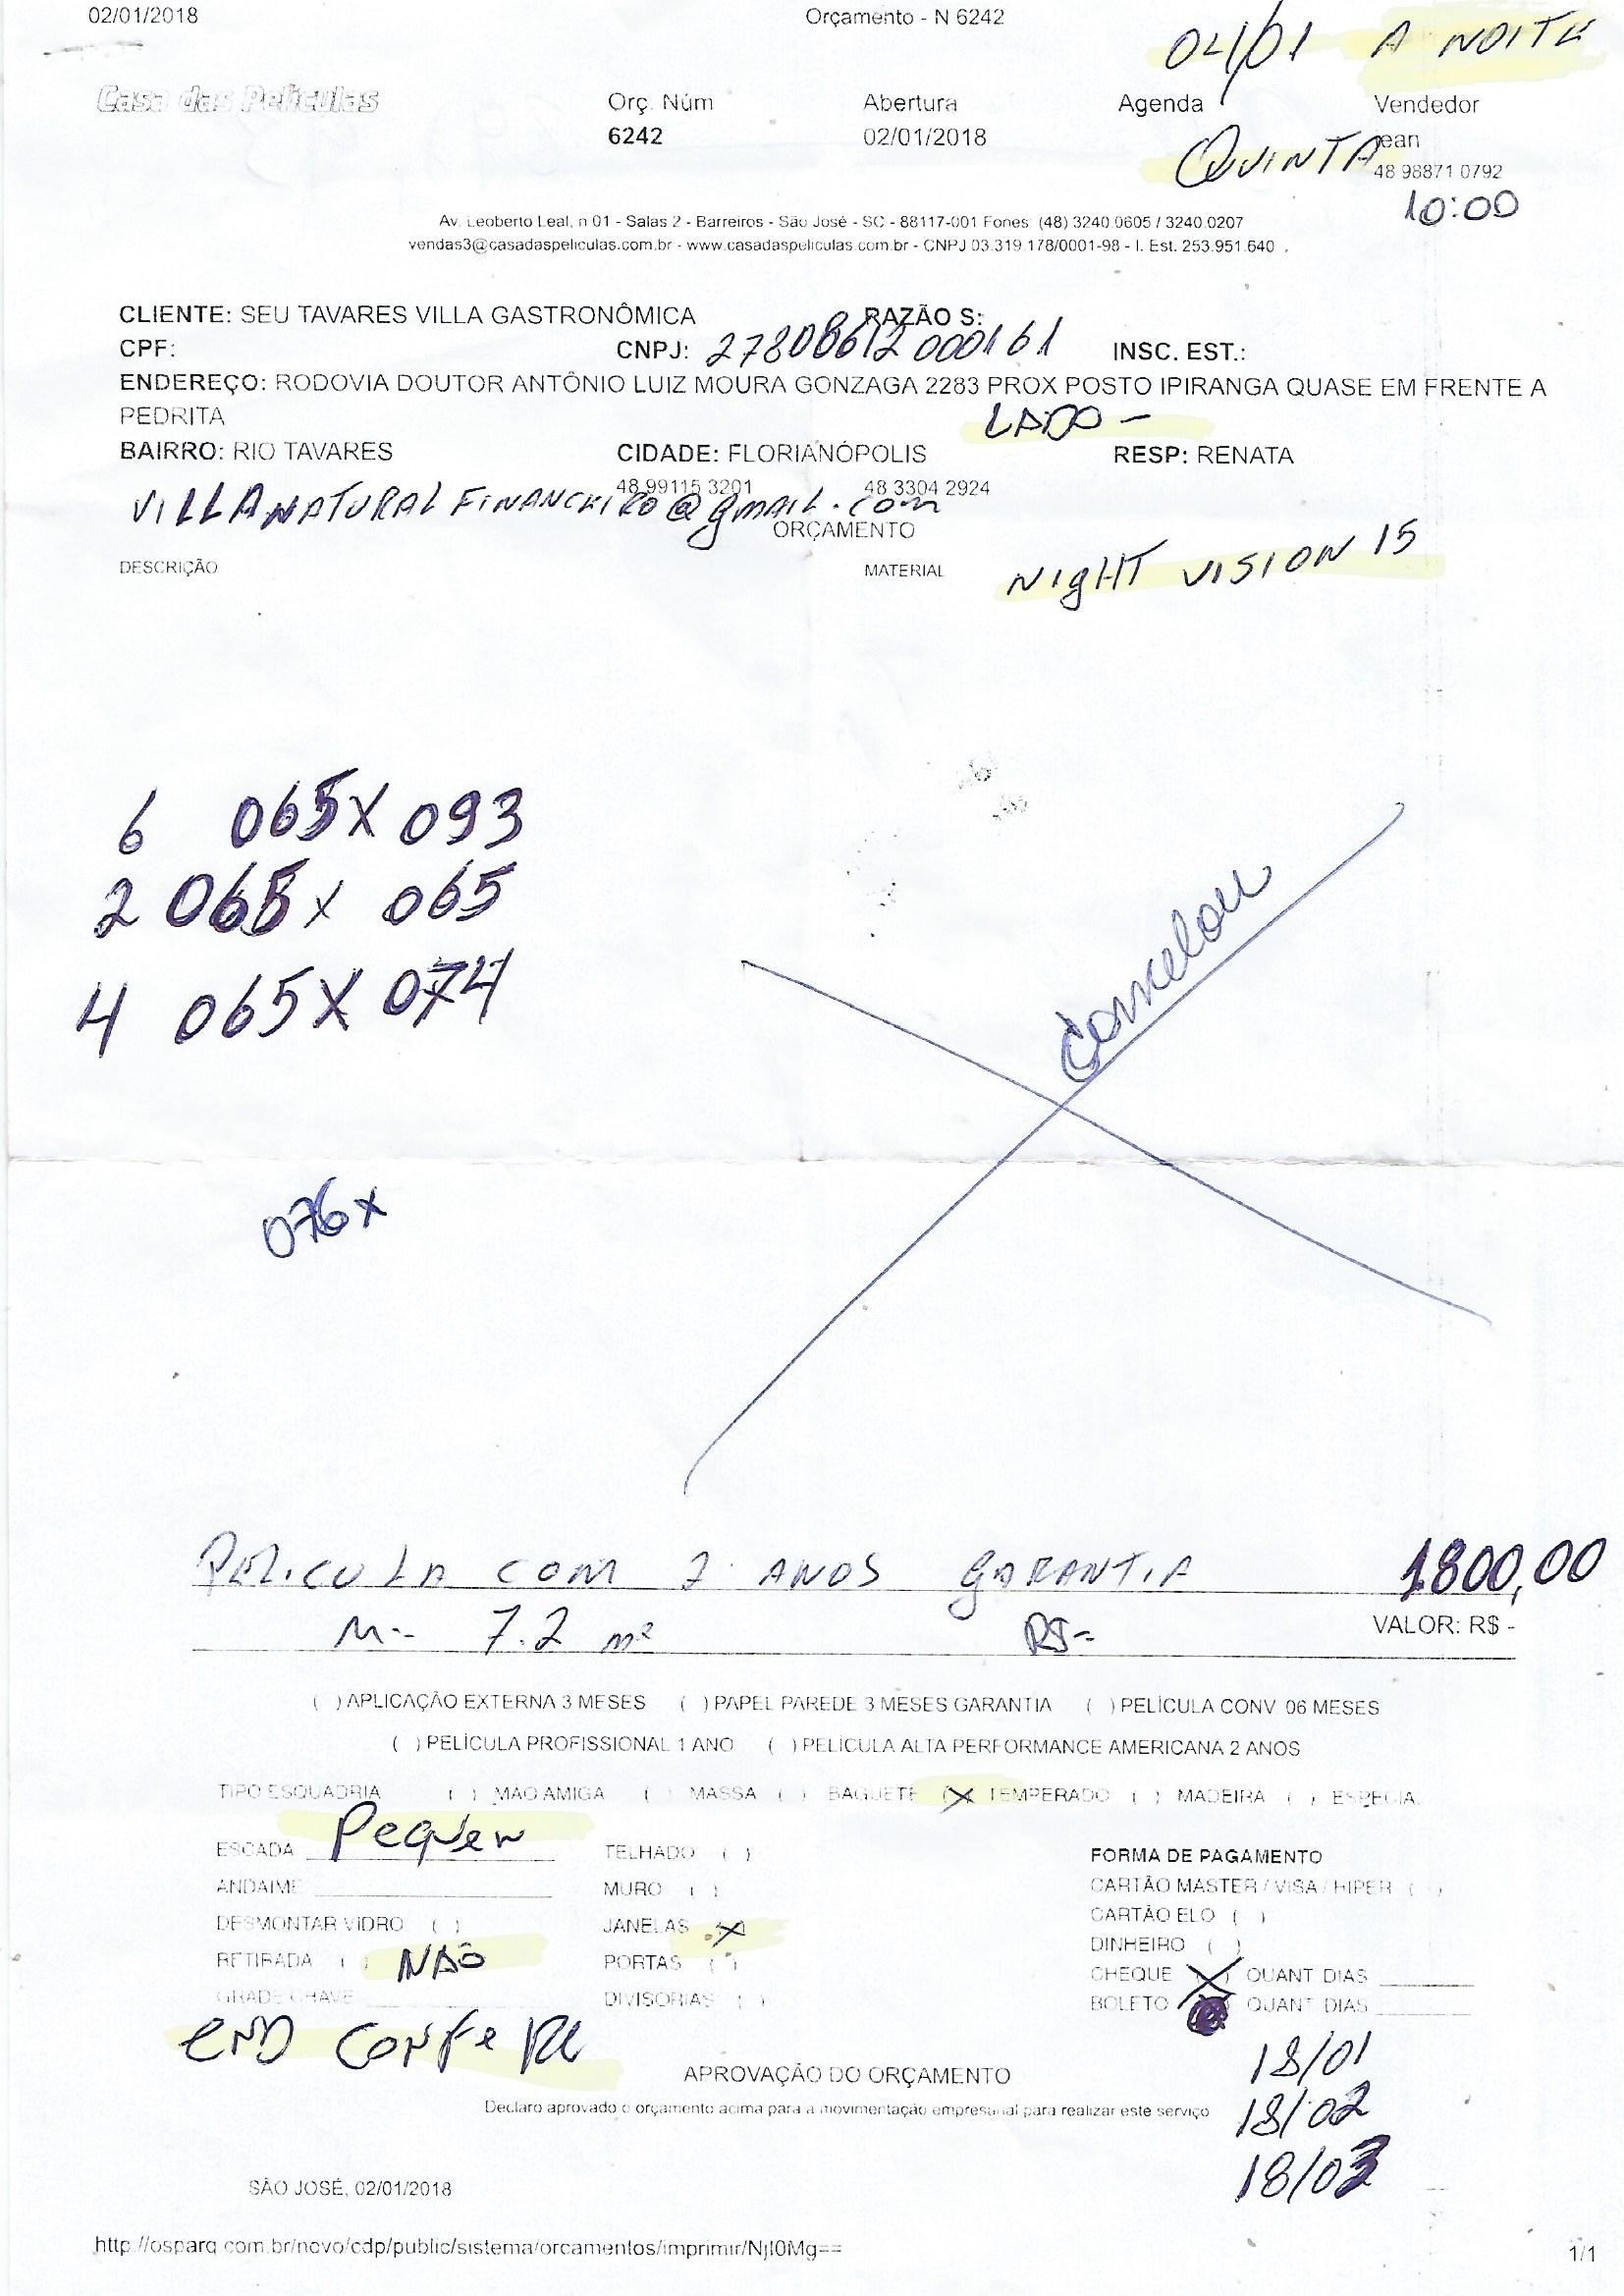 02/01/2018 Orçamento - N 6242
04/01 A NOITE
Casa das Películas Orç. Núm Abertura Agenda Vendedor
6242 02/01/2018 QUINTA jean
48 98871 0792
10:00
Av. Leoberto Leal, n 01 - Salas 2 - Barreiros - São José - SC - 88117-001 Fones (48) 3240.0605 / 3240.0207
vendas3@casadaspeliculas.com.br - www.casadaspeliculas.com.br - CNPJ 03.319.178/0001-98 - I. Est. 253.951.640 .
CLIENTE: SEU TAVARES VILLA GASTRONÔMICA RAZÃO S:
CPF: CNPJ: 27808612000161 INSC. EST.:
ENDEREÇO: RODOVIA DOUTOR ANTÔNIO LUIZ MOURA GONZAGA 2283 PROX POSTO IPIRANGA QUASE EM FRENTE A
PEDRITA LADO -
BAIRRO: RIO TAVARES CIDADE: FLORIANÓPOLIS RESP: RENATA
48 99115 3201 48 3304 2924
VILLANATURALFINANCEIRO@gmail.com
ORÇAMENTO
DESCRIÇÃO MATERIAL NIgHT VISION 15
6 065X093
2 065x 065
4 065X074
Cancelou
076x
PELICULA COM 2 ANOS GARANTIA 1800,00
M-- 7.2 m² R$= VALOR: R$ -
( ) APLICAÇÃO EXTERNA 3 MESES ( ) PAPEL PAREDE 3 MESES GARANTIA ( ) PELÍCULA CONV 06 MESES
( ) PELÍCULA PROFISSIONAL 1 ANO ( ) PELÍCULA ALTA PERFORMANCE AMERICANA 2 ANOS
TIPO ESQUADRIA ( ) MÃO AMIGA ( ) MASSA ( ) BAGUETE (X) TEMPERADO ( ) MADEIRA ( ) ESPECIAL
ESCADA Pequen TELHADO ( ) FORMA DE PAGAMENTO
ANDAIME MURO ( ) CARTÃO MASTER / VISA / HIPER ( )
DESMONTAR VIDRO ( ) JANELAS (X) CARTÃO ELO ( )
RETIRADA ( ) NÃO PORTAS ( ) DINHEIRO ( )
GRADE CHAVE DIVISÓRIAS ( ) CHEQUE (X) QUANT DIAS
BOLETO QUANT DIAS
END CONFERE 18/01
APROVAÇÃO DO ORÇAMENTO
Declaro aprovado o orçamento acima para a movimentação empresarial para realizar este serviço
18/02
18/03
SÃO JOSÉ, 02/01/2018
http://osparq.com.br/novo/cdp/public/sistema/orcamentos/imprimir/NjI0Mg== 1/1